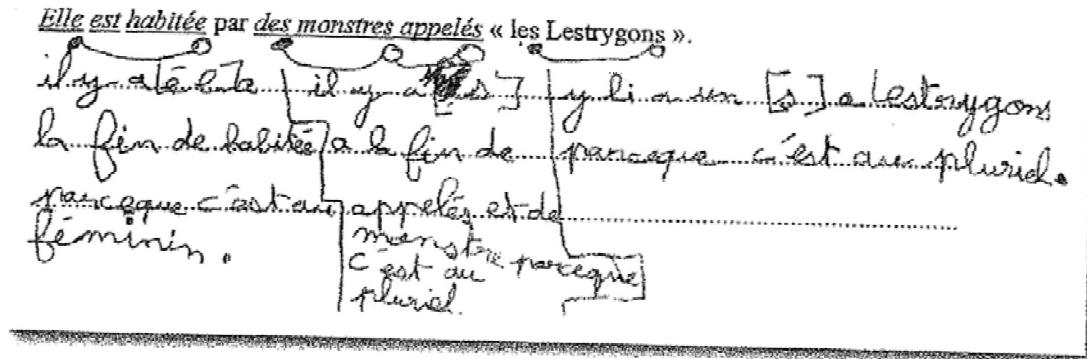 Elle est habitée par des monstres appelés « les Lestrygons ».
il y a [é e] a
la fin de habitée
parceque c'est au
féminin.
il y a [s]
a la fin de
appelés et de
monstre parceque
c'est au
pluriel.
y li a un [s] a Lestrygons
parceque c'est au pluriel.